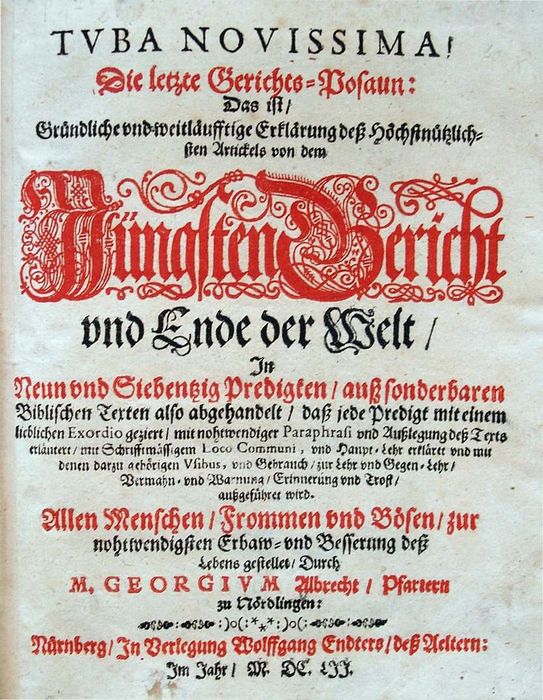 TVBA NOVISSIMA!
Die letzte Gerichts-Posaun:
Das ist/
Gründliche vnd weitläufftige Erklärung deß Höchstnützlich-
sten Artickels von dem
Jüngsten Gericht
vnd Ende der Welt/
In
Neun vnd Siebentzig Predigten/ auß sonderbaren
Biblischen Texten also abgehandelt/ daß jede Predigt mit einem
lieblichen Exordio geziert/ mit nohtwendiger Paraphrasi vnd Außlegung deß Texts
erläutert/ mit Schrifftmässigem Loco Communi, vnd Haupt-Lehr erkläret vnd mit
denen darzu gehörigen Vsibus, vnd Gebrauch/ zur Lehr vnd Gegen-Lehr/
Vermahn- vnd Warnung/ Erinnerung vnd Trost/
außgeführet wird.
Allen Menschen/ Frommen vnd Bösen/ zur
nohtwendigsten Erbaw- vnd Besserung deß
Lebens gestellet/ Durch
M. GEORGIVM Albrecht/ Pfarrern
zu Nördlingen:
:)o(:*⁎*:)o(:
Nürnberg/ In Verlegung Wolffgang Endters/ deß Aeltern:
Im Jahr/ M. DC. LII.